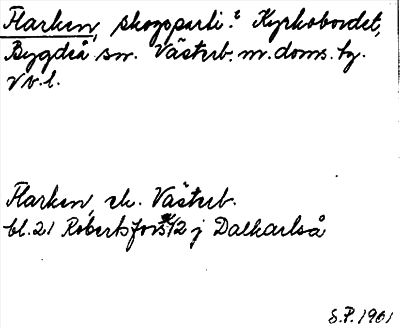 Flarken, skogsparti i Kyrkobordet,
Bygdeå sn. Västerb. m. doms. hg.
Vb. l.
Flarken, ek. Västerb.
bl. 21 Robertsfors 1/2 j Dalkarlså
S.P. 1961